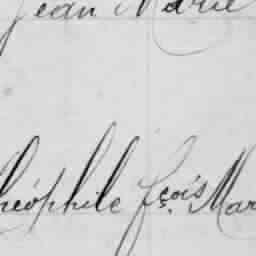 Jean Marie
héophile fçois Mar